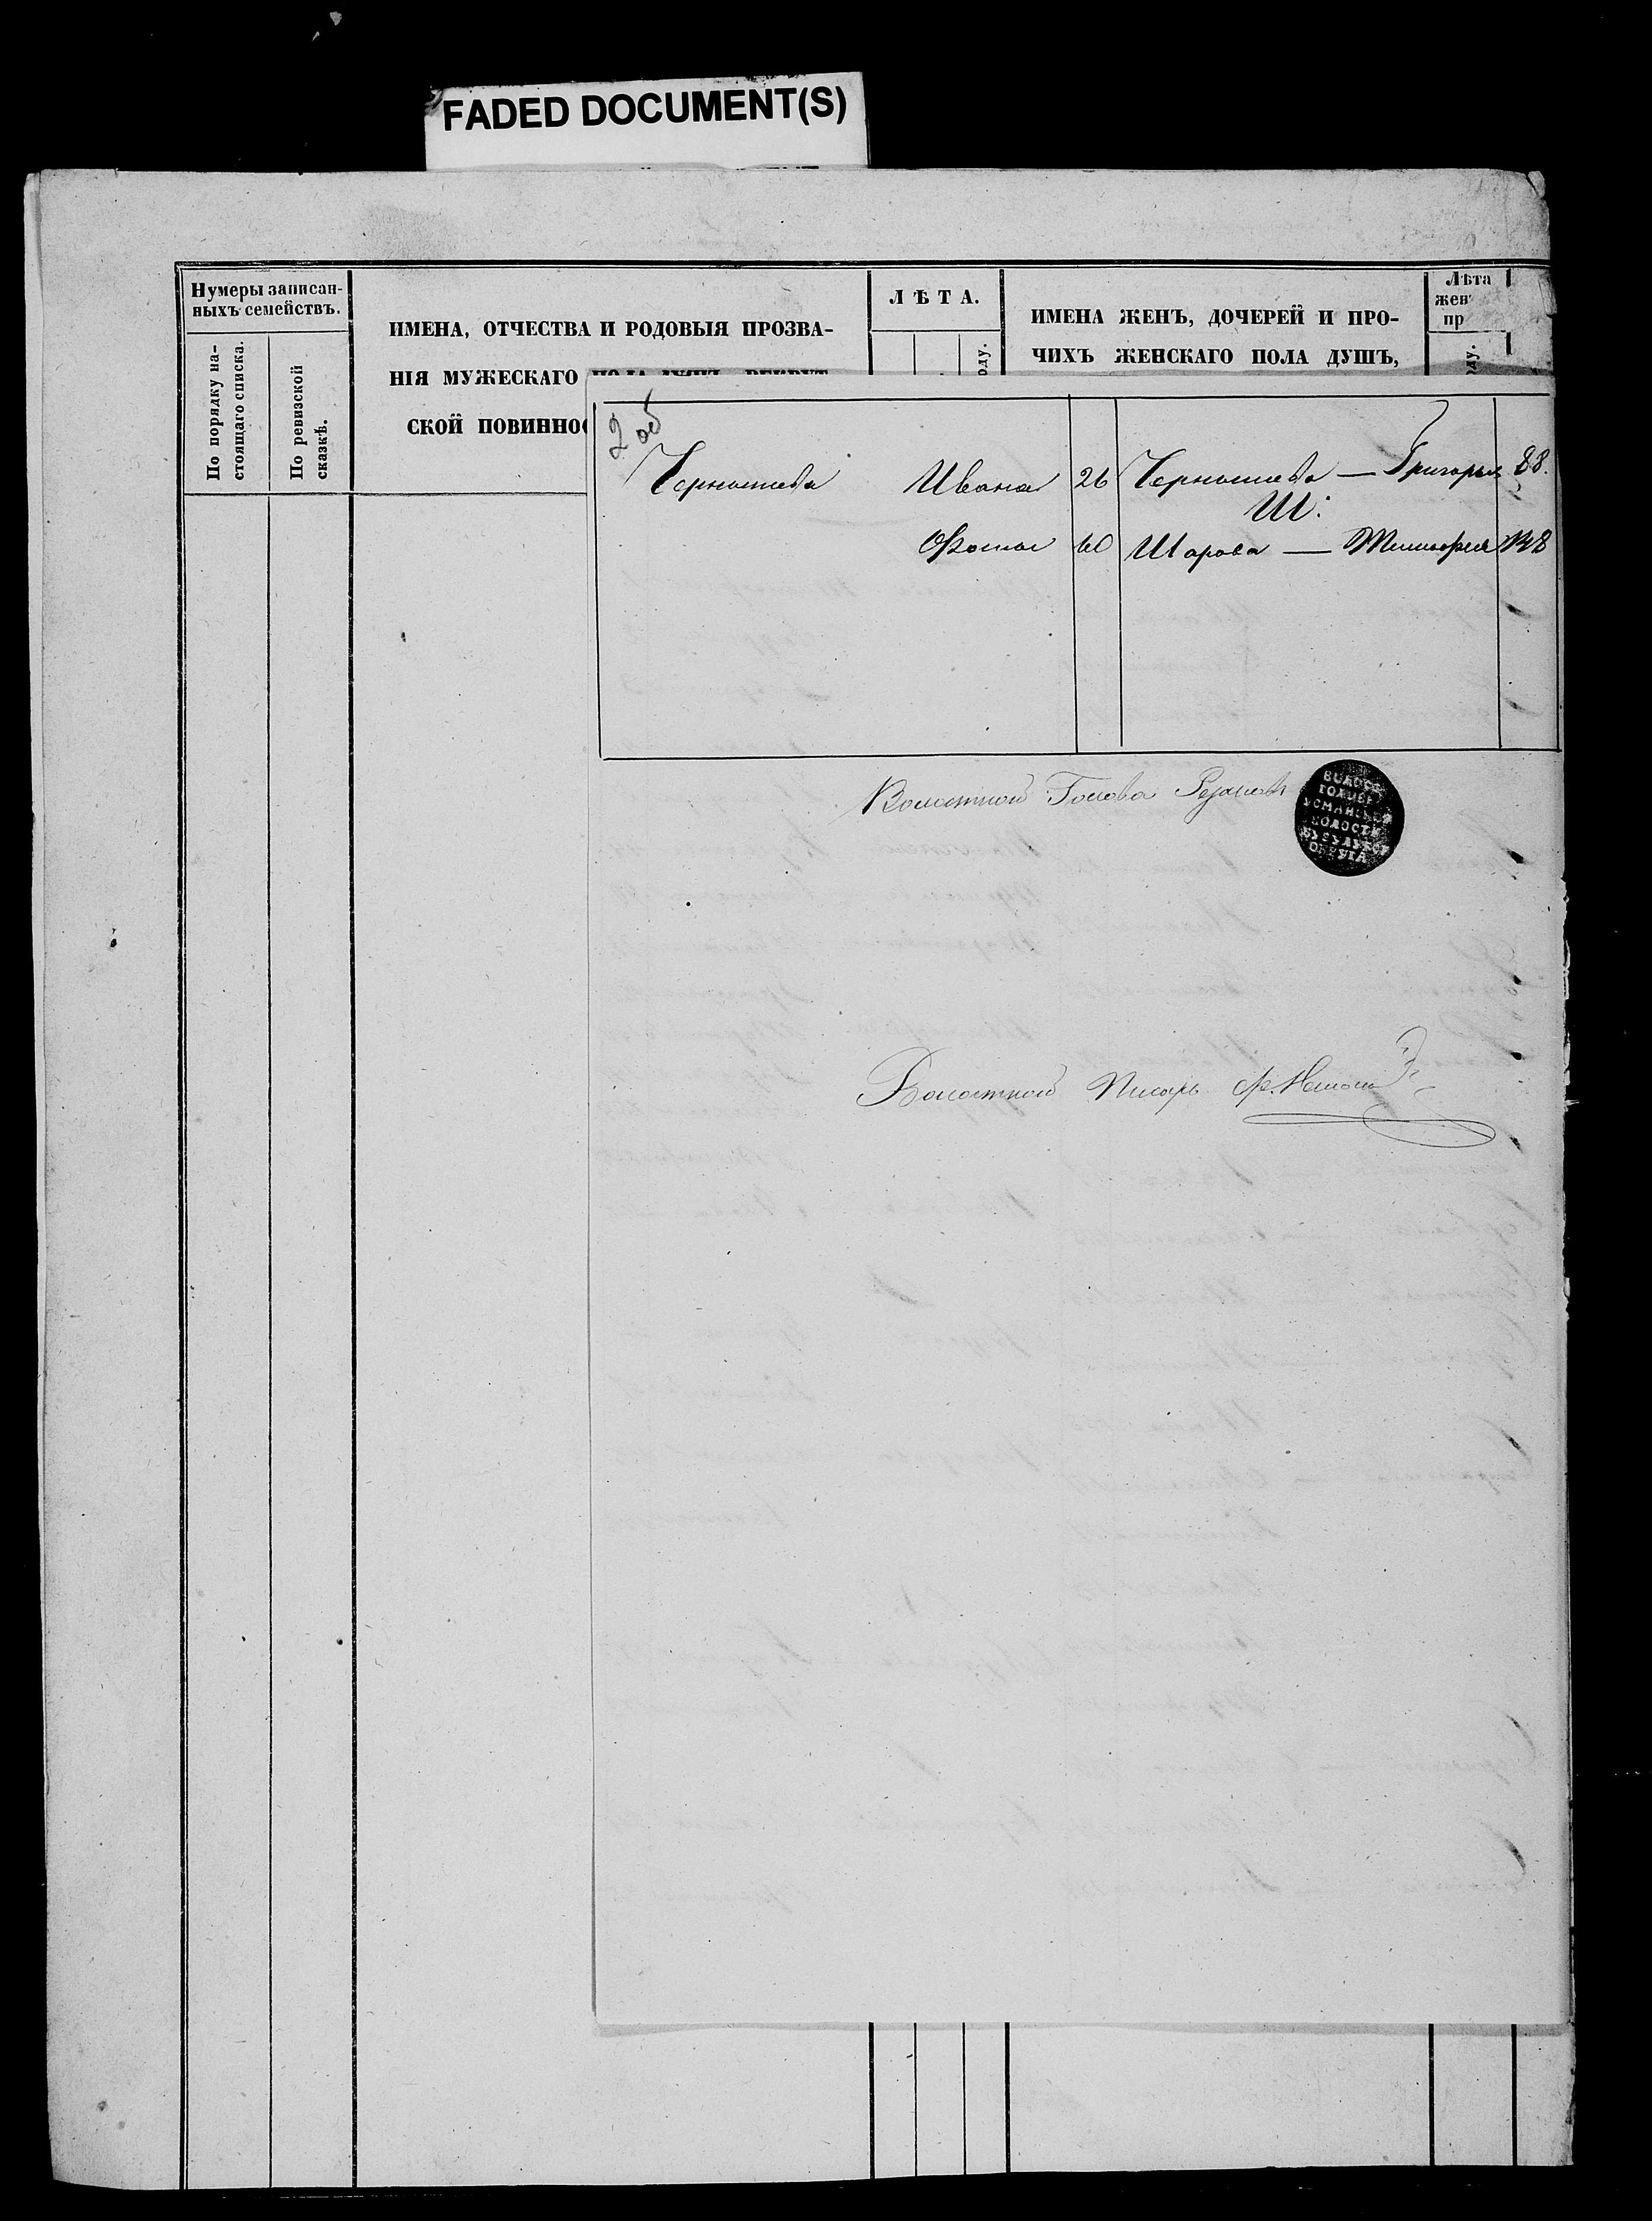 FADED DOCUMENT(S)
Нумеры записан-
ныхъ семействъ.
По порядку на-
стоящаго списка.
По ревизской
сказкѣ.
ИМЕНА, ОТЧЕСТВА И РОДОВЫЯ ПРОЗВА-
НІЯ МУЖЕСКАГО
СКОЙ ПОВИННОС
ЛѢТА.
оду.
ИМЕНА ЖЕНЪ, ДОЧЕРЕЙ И ПРО-
ЧИХЪ ЖЕНСКАГО ПОЛА ДУШЪ,
Лѣта
жен
пр
ду.
2 об
Чернышева Ивана 26 Чернышева — Григорья 88.
Ш:
Фомы 60 Шарова — Тимофея 148
Волостной Голова Резановъ
ВОЛОСТ
ГОЛОВЫ
УСМАНСКОЙ
ВОЛОСТИ
БУЗУЛУКСК
ОКРУГА
Волостной Писарь